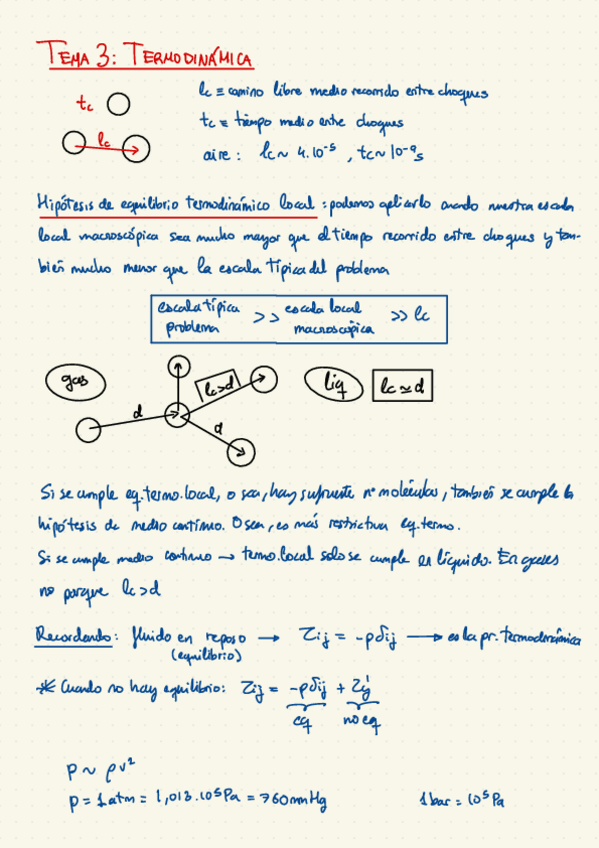 TEMA 3: TERMODINÁMICA
lc ≡ camino libre medio recorrido entre choques
tc
tc ≡ tiempo medio entre choques
lc
aire: lc ~ 4.10⁻⁵, tc ~ 10⁻⁹ s
Hipótesis de equilibrio termodinámico local: podemos aplicarlo cuando nuestra escala
local macroscópica sea mucho mayor que el tiempo recorrido entre choques y tam-
bién mucho menor que la escala típica del problema
escala típica problema >> escala local macroscópica >> lc
gas
d
lc>d
d
liq
lc ≃ d
Si se cumple eq. termo. local, o sea, hay suficiente nº moléculas, también se cumple la
hipótesis de medio continuo. O sea, es más restrictiva eq. termo.
Si se cumple medio continuo → termo. local solo se cumple en líquido. En gases
no porque lc>d
Recordando: fluido en reposo → τij = -pδij → es la pr. termodinámica
(equilibrio)
* Cuando no hay equilibrio: τij = -pδij + τij'
eq no eq
P ~ ρv²
p = 1 atm = 1,013.10⁵ Pa = 760 mmHg 1 bar = 10⁵ Pa